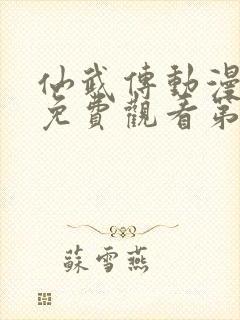 仙武傳動漫
免費觀看第
蘇雪燕